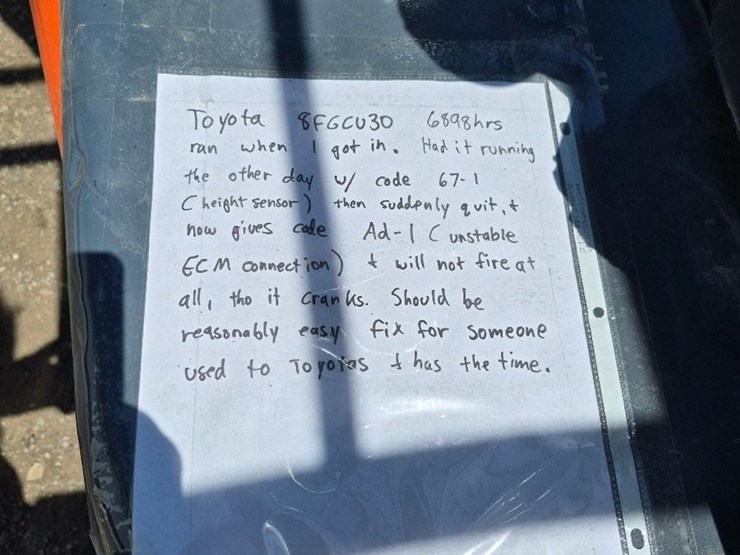 Toyota 8FGCU30 6898hrs
ran when I got in. Had it running
the other day w/ code 67-1
(height sensor) then suddenly quit, &
now gives code Ad-1 (unstable
ECM connection) & will not fire at
all, tho it cranks. Should be
reasonably easy fix for someone
used to Toyotas & has the time.